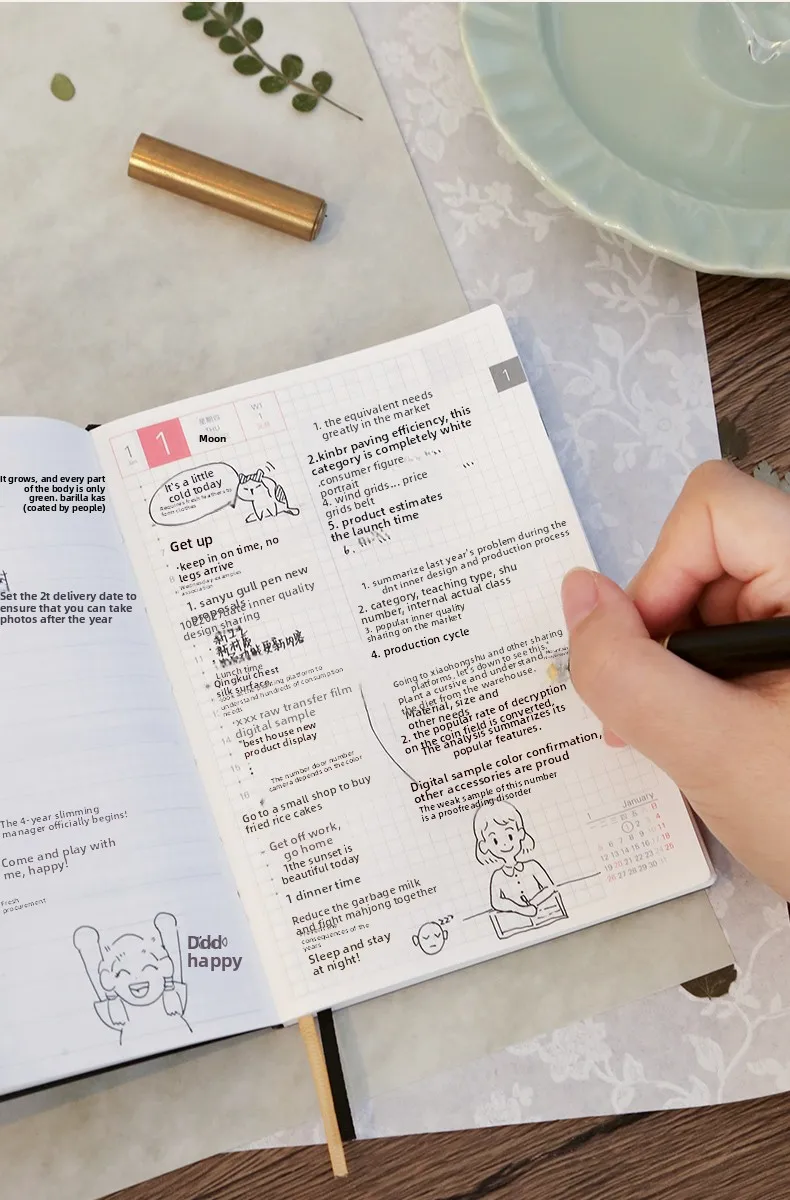 It grows, and every part
of the body is only
green. barilla kas
(coated by people)
Set the 2t delivery date to
ensure that you can take
photos after the year
The 4-year slimming
manager officially begins!
Come and play with
me, happy!
Fresh
procurement
happy
1
1
星期四
THU
Moon
1
It's a little
cold today
Get up
·keep in on time, no
legs arrive
Wednesday examples
association
1. sanyu gull pen new
proposals
inner quality
design sharing
Lunch time
Qingkui chest
silk surface
understand hundreds of consumption
needs
·xxx raw transfer film
digital sample
"best house new
product display
The number door number
camera depends on the color
Go to a small shop to buy
fried rice cakes
Get off work,
go home
1the sunset is
beautiful today
1 dinner time
Reduce the garbage milk
and fight mahjong together
consequences of the
years
Sleep and stay
at night!
1
1. the equivalent needs
greatly in the market
2.kinbr paving efficiency, this
category is completely white
.consumer figure
portrait
4. wind grids... price
grids belt
5. product estimates
the launch time
6.
1. summarize last year's problem during the
dnt inner design and production process
2. category, teaching type, shu
number, internal actual class
3. popular inner quality
sharing on the market
4. production cycle
Going to xiaohongshu and other sharing
platforms, let's down to see this,
plant a cursive and understand
the diet from the warehouse.
Material, size and
other needs
2. the popular rate of decryption
on the coin field is converted,
The analysis summarizes its
popular features.
Digital sample color confirmation,
other accessories are proud
The weak sample of this number
is a proofreading disorder
1 January
1 2 3 4
5 6 7 8 9 10 11
12 13 14 15 16 17 18
19 20 21 22 23 24 25
26 27 28 29 30 31